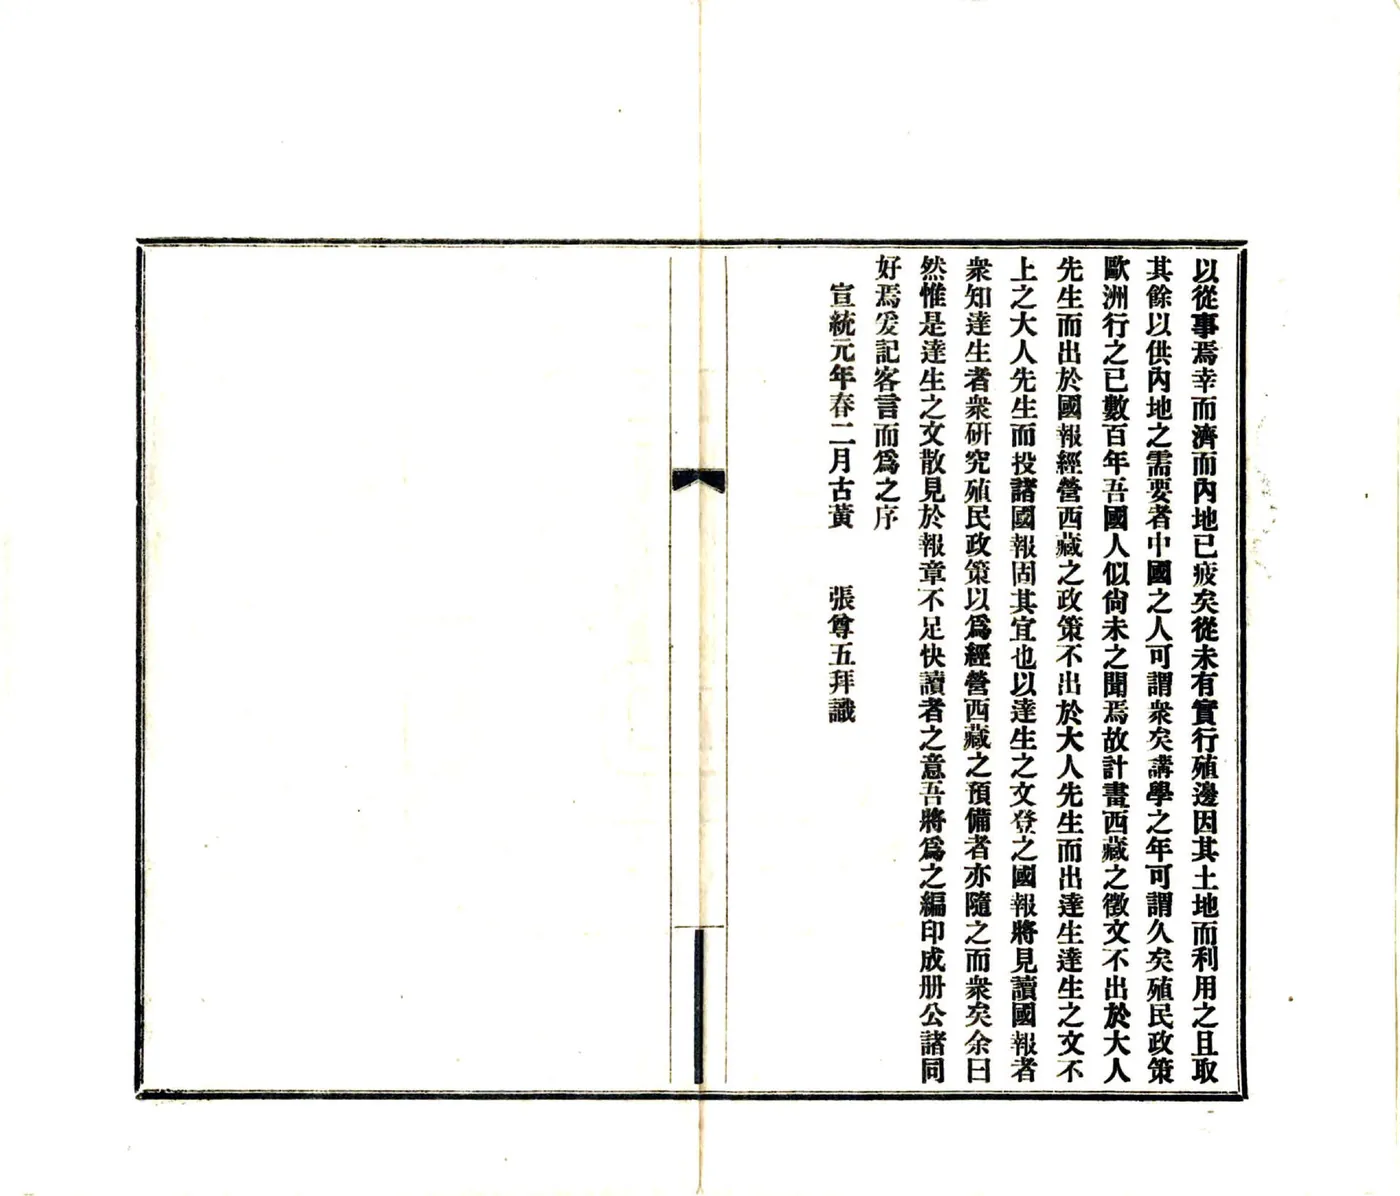 以從事焉幸而濟而內地已疲矣從未有實行殖邊因其土地而利用之且取
其餘以供內地之需要者中國之人可謂衆矣講學之年可謂久矣殖民政策
歐洲行之已數百年吾國人似尙未之聞焉故計畫西藏之徵文不出於大人
先生而出於國報經營西藏之政策不出於大人先生而出達生達生之文不
上之大人先生而投諸國報固其宜也以達生之文登之國報將見讀國報者
衆知達生者衆硏究殖民政策以爲經營西藏之預備者亦隨之而衆矣余曰
然惟是達生之文散見於報章不足快讀者之意吾將爲之編印成册公諸同
好焉爰記客言而爲之序
宣統元年春二月古黃　　張尊五拜識